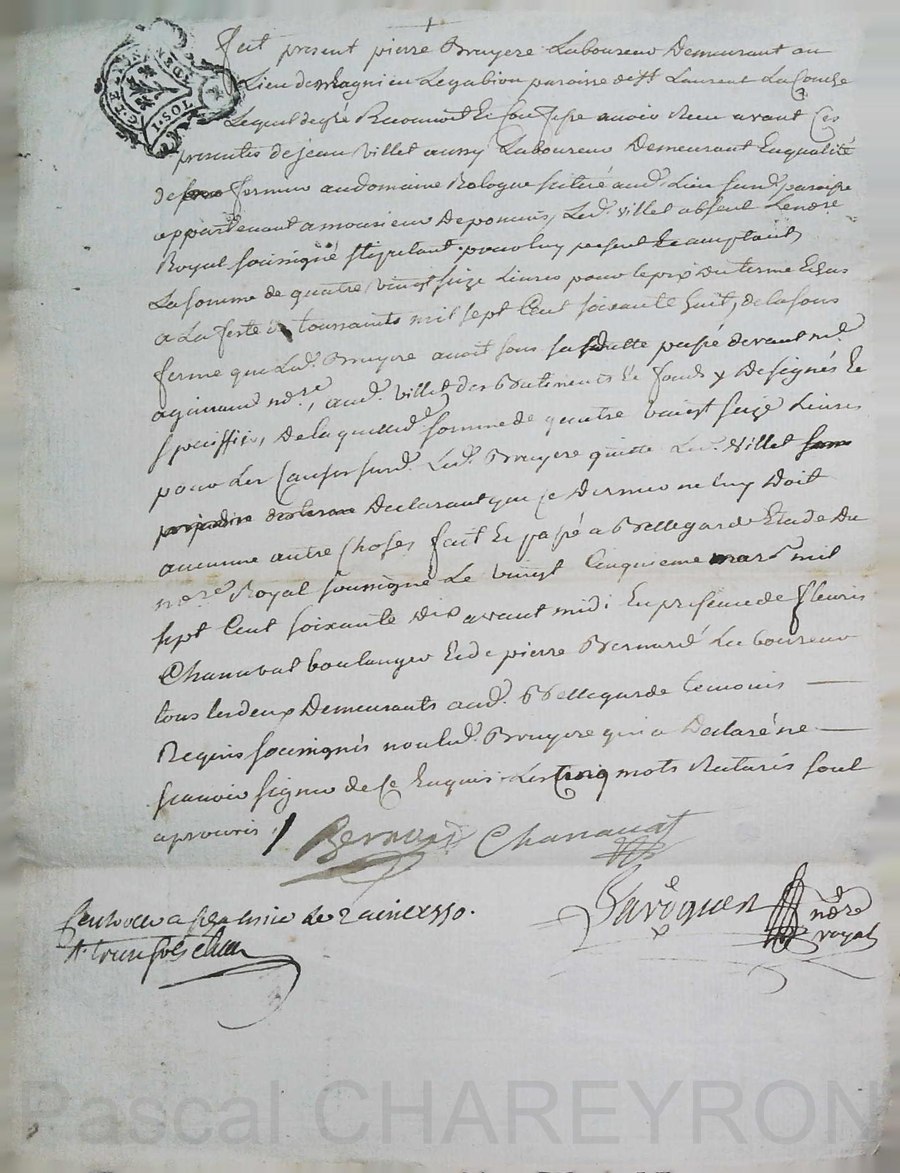 GEN
1. SOL
Fut present pierre Bruyere Laboureur Demeurant au
Lieu de Magnieu Legabion paroisse de St Laurent La Conche
Lequel degré Reconnoit Et Confesse avoir Receu avant Ces
presentes de jean villet aussy Laboureur Demeurant En qualité
de fermier audomaine Bologne scitué aud. Lieu surd. paroisse
appartenant a monsieur Deponcins, Led. villet absent Le nore
Royal soussigné stipulant pour luy present Et acceptant
La somme de quatre vingt seize Livres pour le prix Du terme Echus
a La feste de toussaints mil sept Cent soixante huit, de la sous
ferme que Led. Bruyere avoit sous sa datte passé devant me
nore, aud. villet des Batiments Et fonds y Designés Et
speciffiés, De laquelle de somme de quatre vingt seize Livres
pour Les Causes surd. Led. Bruyere quitte Led. Villet
Declarant que ce Dernier ne luy Doit
aucune autre Choses, fait Et passé a Bellegarde Etude Du
nore Royal soussigné Le vingt Cinquieme mars mil
sept Cent soixante Dix avant midi En presence de fleuris
Chanavat boulanger Et de pierre Bernard Laboureur
tous les deux Demeurants aud. Bellegarde temoins
Requis soussignés non led. Bruyere qui a Declaré ne
scavoir signer de Ce Enquis. Les trois mots Raturés sont
aprouvés
Bernard Chanavat
nore
royal
Pascal CHAREYRON